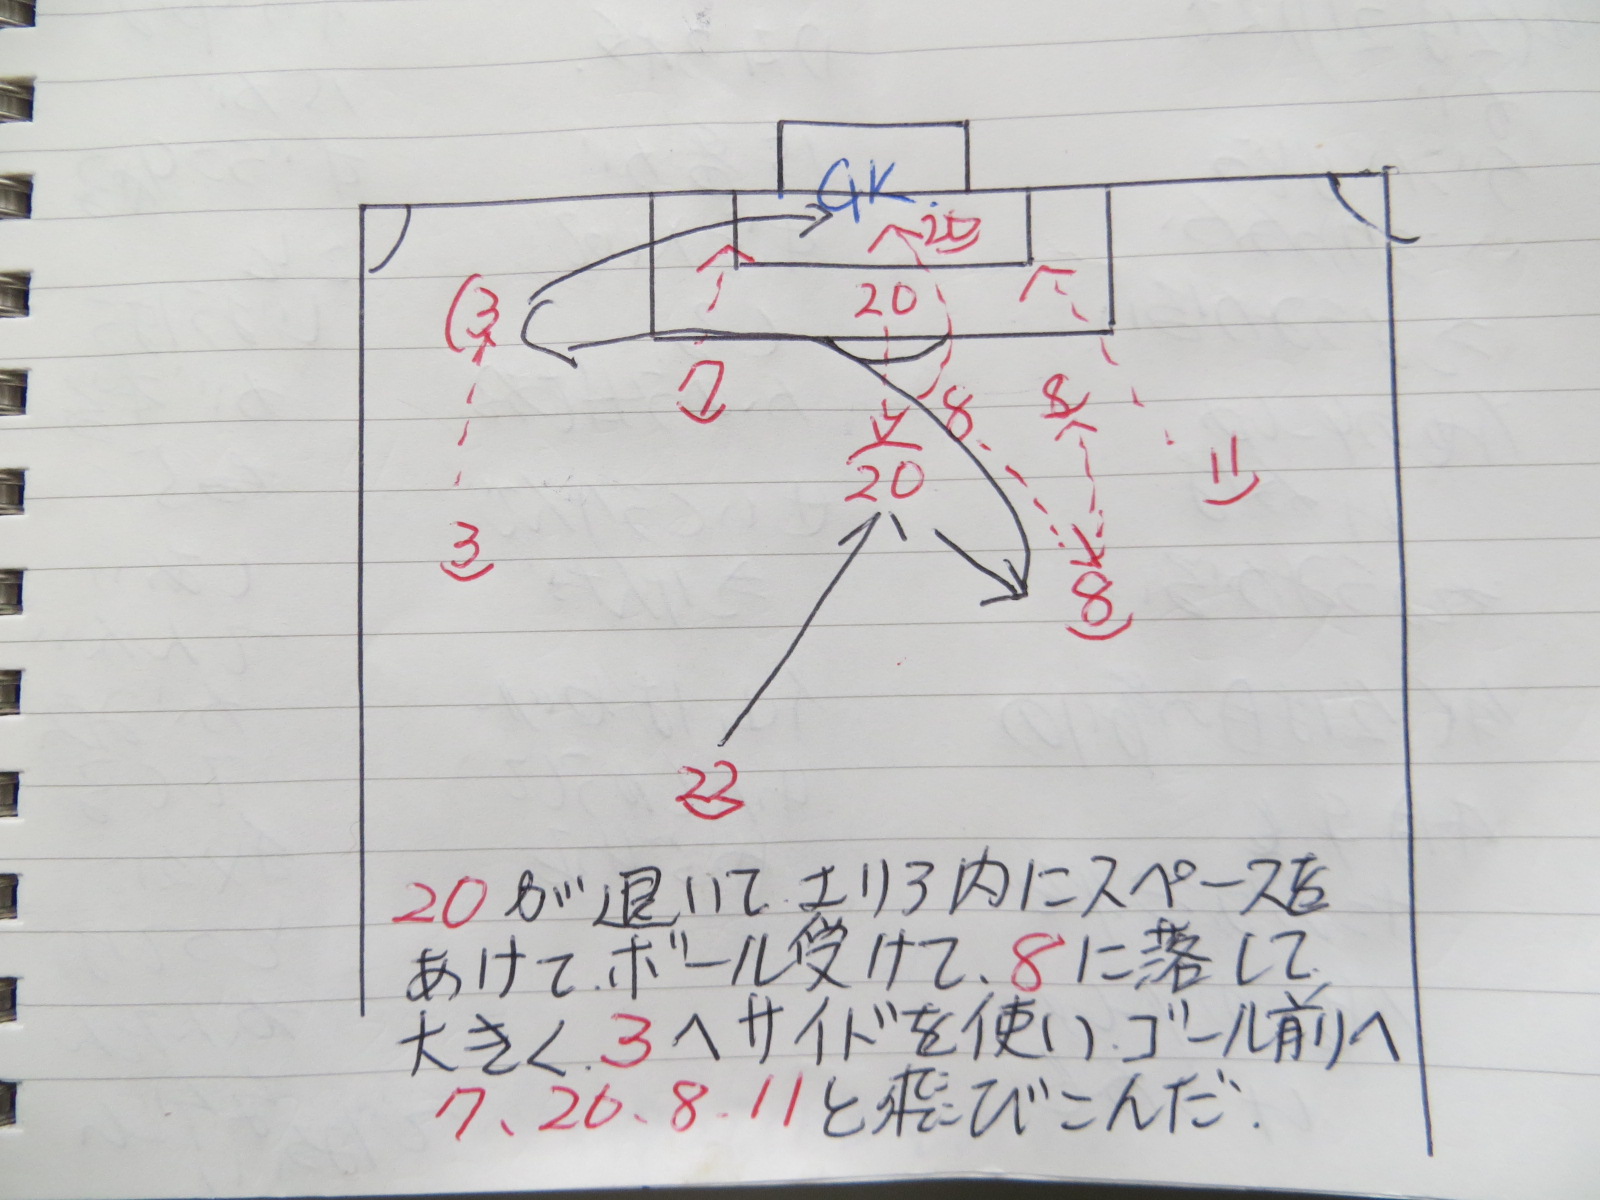 GK.
20
(3
20
7
8
8
11
20
3
8
22
20が退いて.エリア内にスペースを
あけて.ボール受けて、8に落して.
大きく.3へサイドを使い.ゴール前へ
7、20、8.11と飛びこんだ.